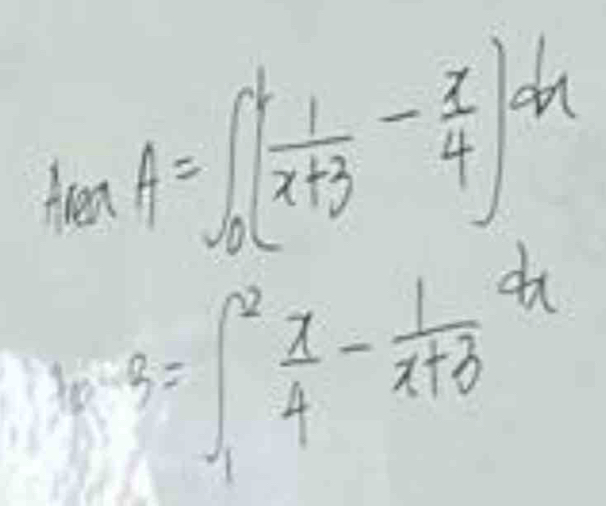 Area A = ∫₀¹ (1/(x+3) − x/4) dx
B = ∫₁² x/4 − 1/(x+3) dx